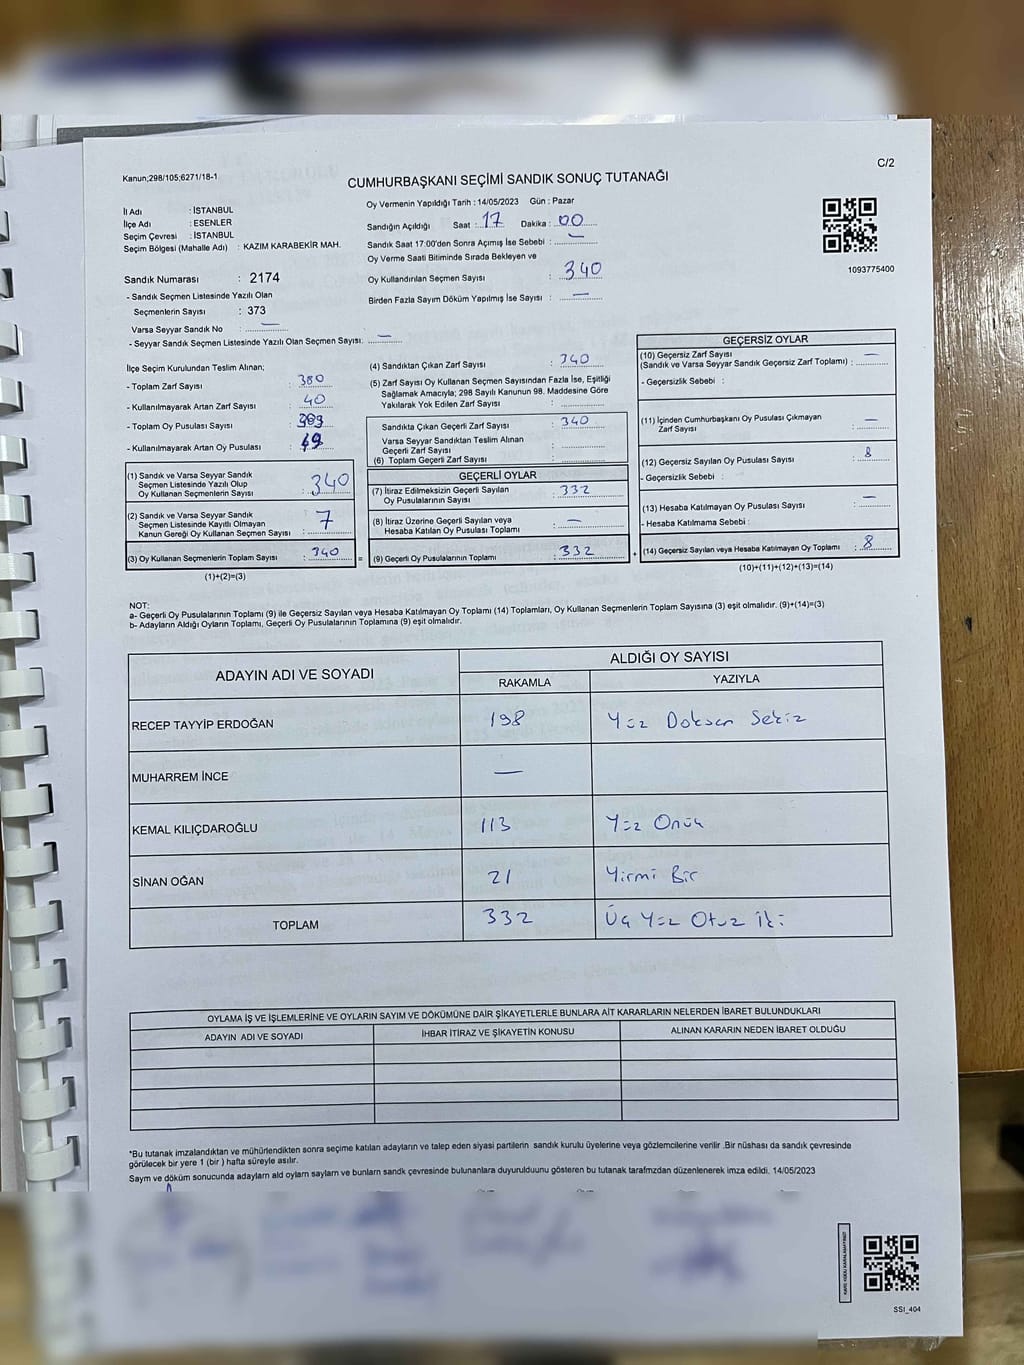 C/2
Kanun;298/105;6271/18-1
CUMHURBAŞKANI SEÇİMİ SANDIK SONUÇ TUTANAĞI
İl Adı : İSTANBUL
İlçe Adı : ESENLER
Seçim Çevresi : İSTANBUL
Seçim Bölgesi (Mahalle Adı) : KAZIM KARABEKİR MAH.
Oy Vermenin Yapıldığı Tarih : 14/05/2023 Gün : Pazar
Sandığın Açıldığı Saat : 17 Dakika : 00
Sandık Saat 17:00'den Sonra Açımış İse Sebebi : —
Oy Verme Saati Bitiminde Sırada Bekleyen ve
Oy Kullandırılan Seçmen Sayısı : 340
Birden Fazla Sayım Döküm Yapılmış İse Sayısı : —
1093775400
Sandık Numarası : 2174
- Sandık Seçmen Listesinde Yazılı Olan
Seçmenlerin Sayısı : 373
Varsa Seyyar Sandık No : —
- Seyyar Sandık Seçmen Listesinde Yazılı Olan Seçmen Sayısı: —
İlçe Seçim Kurulundan Teslim Alınan;
- Toplam Zarf Sayısı : 380
- Kullanılmayarak Artan Zarf Sayısı : 40
- Toplam Oy Pusulası Sayısı :
- Kullanılmayarak Artan Oy Pusulası :
(1) Sandık ve Varsa Seyyar Sandık
Seçmen Listesinde Yazılı Olup
Oy Kullanan Seçmenlerin Sayısı : 340
(2) Sandık ve Varsa Seyyar Sandık
Seçmen Listesinde Kayıtlı Olmayan
Kanun Gereği Oy Kullanan Seçmen Sayısı : 7
(3) Oy Kullanan Seçmenlerin Toplam Sayısı : 340
(1)+(2)=(3)
(4) Sandıktan Çıkan Zarf Sayısı : 340
(5) Zarf Sayısı Oy Kullanan Seçmen Sayısından Fazla İse, Eşitliği
Sağlamak Amacıyla; 298 Sayılı Kanunun 98. Maddesine Göre
Yakılarak Yok Edilen Zarf Sayısı :
Sandıkta Çıkan Geçerli Zarf Sayısı : 340
Varsa Seyyar Sandıktan Teslim Alınan
Geçerli Zarf Sayısı :
(6) Toplam Geçerli Zarf Sayısı :
GEÇERLİ OYLAR
(7) İtiraz Edilmeksizin Geçerli Sayılan
Oy Pusulalarının Sayısı : 332
(8) İtiraz Üzerine Geçerli Sayılan veya
Hesaba Katılan Oy Pusulası Toplamı : —
= (9) Geçerli Oy Pusulalarının Toplamı : 332
GEÇERSİZ OYLAR
(10) Geçersiz Zarf Sayısı
(Sandık ve Varsa Seyyar Sandık Geçersiz Zarf Toplamı) : —
- Geçersizlik Sebebi :
(11) İçinden Cumhurbaşkanı Oy Pusulası Çıkmayan
Zarf Sayısı : —
(12) Geçersiz Sayılan Oy Pusulası Sayısı : 8
- Geçersizlik Sebebi :
(13) Hesaba Katılmayan Oy Pusulası Sayısı : —
- Hesaba Katılmama Sebebi :
+ (14) Geçersiz Sayılan veya Hesaba Katılmayan Oy Toplamı : 8
(10)+(11)+(12)+(13)=(14)
NOT:
a- Geçerli Oy Pusulalarının Toplamı (9) ile Geçersiz Sayılan veya Hesaba Katılmayan Oy Toplamı (14) Toplamları, Oy Kullanan Seçmenlerin Toplam Sayısına (3) eşit olmalıdır. (9)+(14)=(3)
b- Adayların Aldığı Oyların Toplamı, Geçerli Oy Pusulalarının Toplamına (9) eşit olmalıdır.
ADAYIN ADI VE SOYADI ALDIĞI OY SAYISI
RAKAMLA YAZIYLA
RECEP TAYYİP ERDOĞAN 198 Yüz Doksan Sekiz
MUHARREM İNCE —
KEMAL KILIÇDAROĞLU 113 Yüz Onüç
SİNAN OĞAN 21 Yirmi Bir
TOPLAM 332 Üç Yüz Otuz İki
OYLAMA İŞ VE İŞLEMLERİNE VE OYLARIN SAYIM VE DÖKÜMÜNE DAİR ŞİKAYETLERLE BUNLARA AİT KARARLARIN NELERDEN İBARET BULUNDUKLARI
ADAYIN ADI VE SOYADI İHBAR İTİRAZ VE ŞİKAYETİN KONUSU ALINAN KARARIN NEDEN İBARET OLDUĞU
*Bu tutanak imzalandıktan ve mühürlendikten sonra seçime katılan adayların ve talep eden siyasi partilerin sandık kurulu üyelerine veya gözlemcilerine verilir .Bir nüshası da sandık çevresinde
görülecek bir yere 1 (bir ) hafta süreyle asılır.
Saym ve döküm sonucunda adaylarn ald oylarn saylarn ve bunlarn sandk çevresinde bulunanlara duyurulduunu gösteren bu tutanak tarafmzdan düzenlenerek imza edildi. 14/05/2023
SSI_404